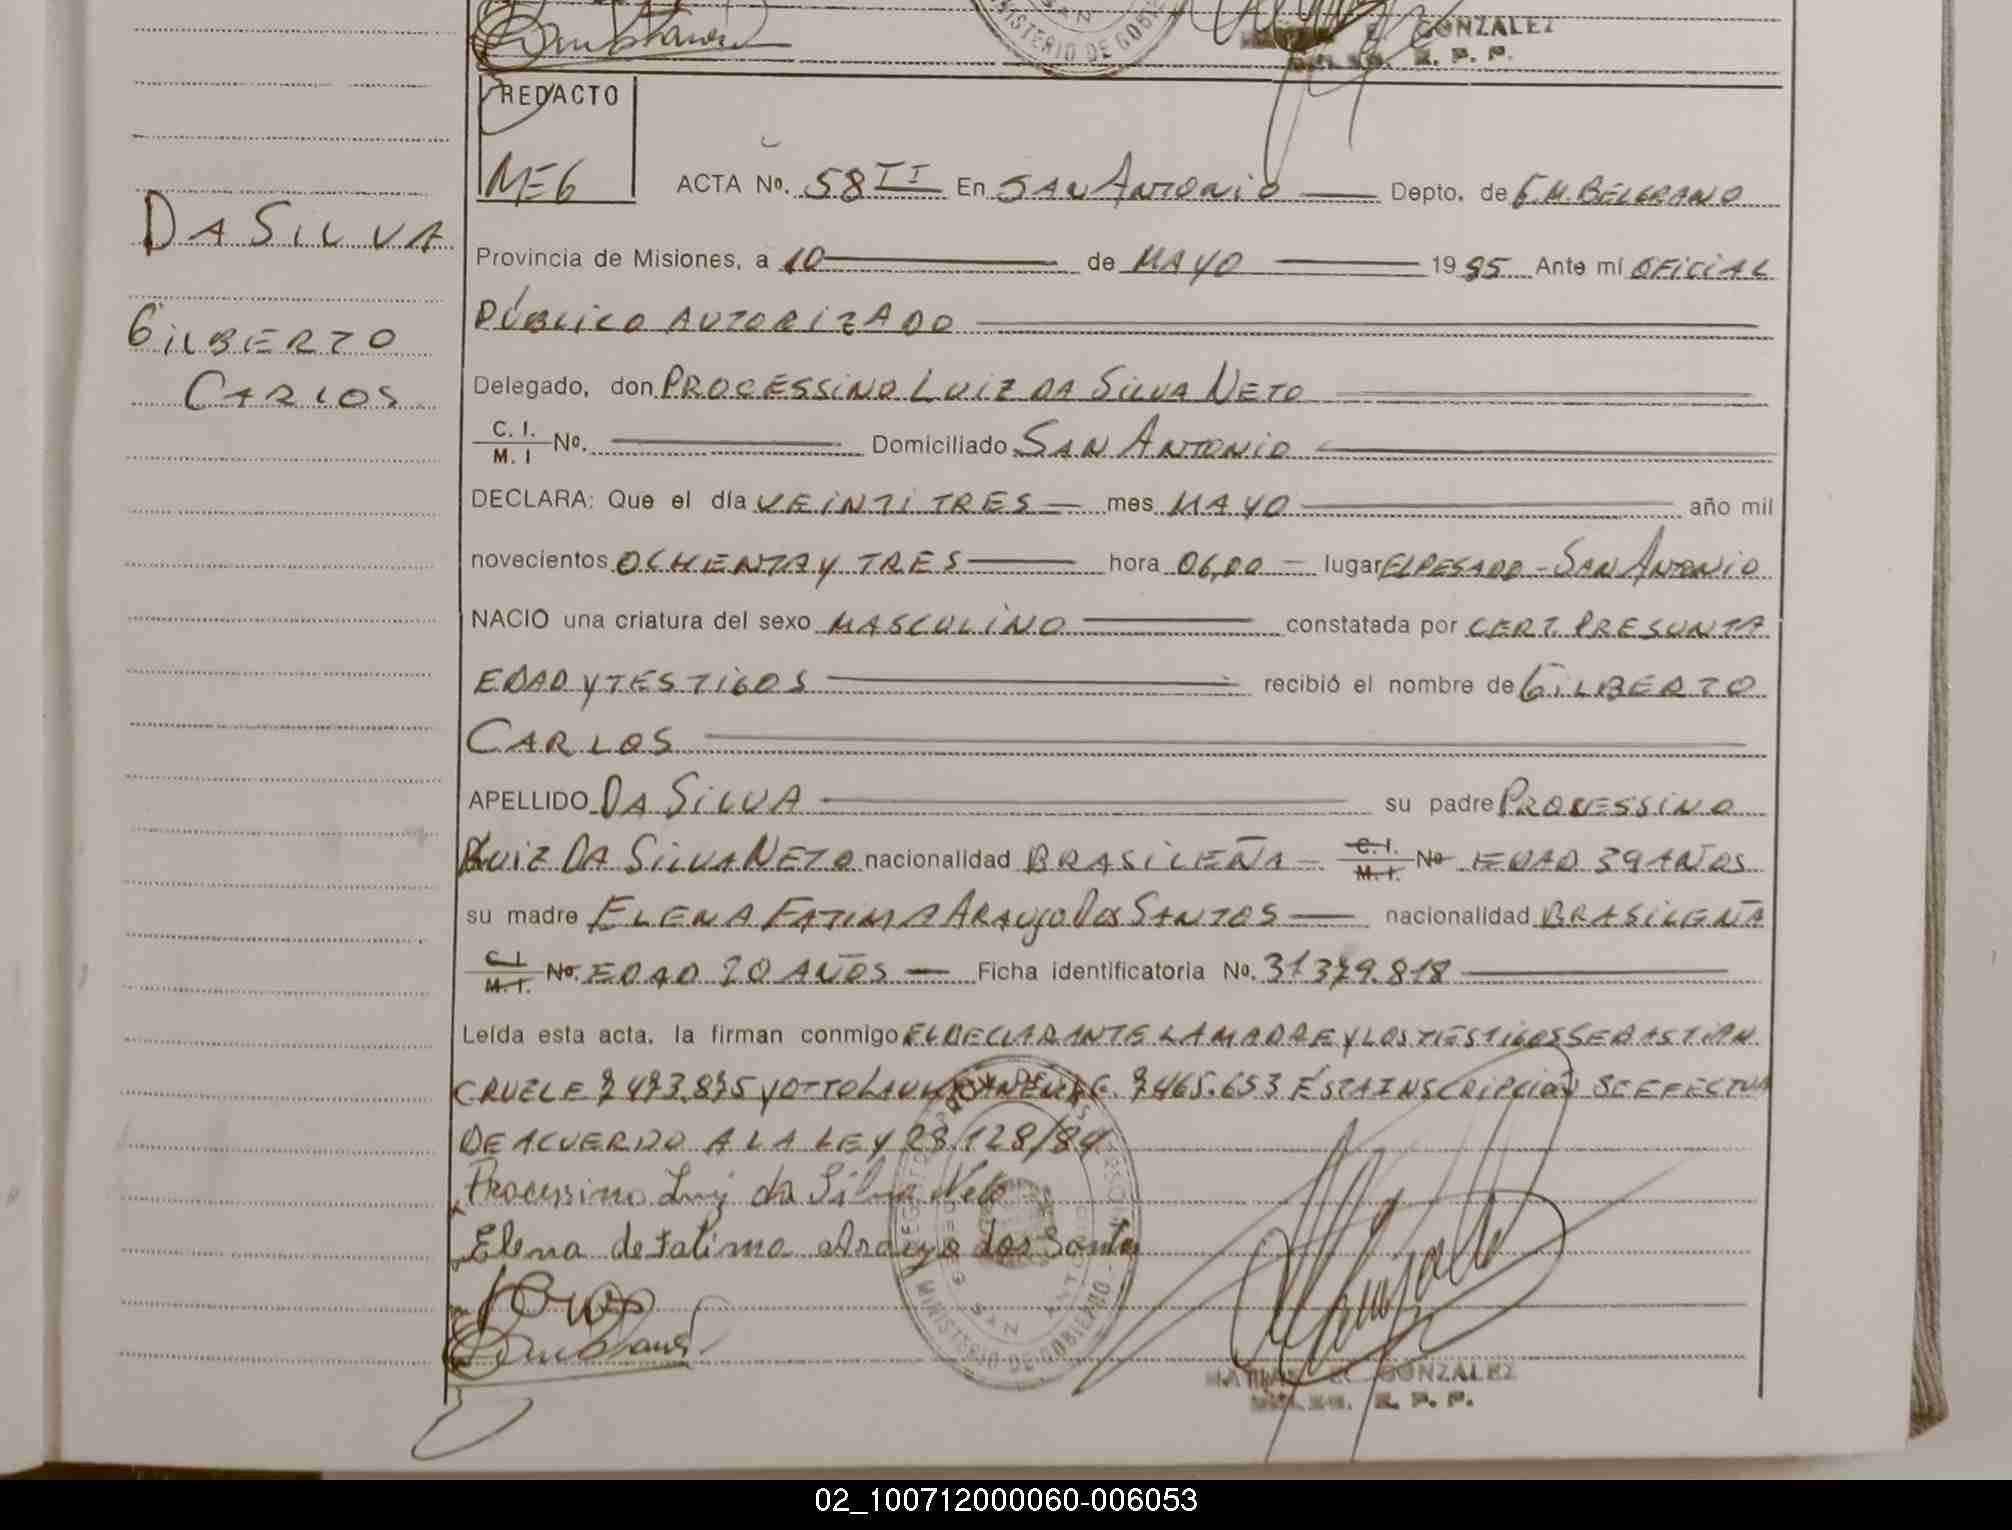 GONZALEZ
R. P. P.
MINISTERIO DE GOBIE
REDACTO
MEG
ACTA No. 58 TI En SAN ANTONIO Depto. de G.M. BELGRANO
DA SILVA
Provincia de Misiones, a 10 de MAYO 1985 Ante mí OFICIAL
GILBERTO
PÚBLICO AUTORIZADO
CARLOS
Delegado, don PROCESSINO LUIZ DA SILVA NETO
C. I. / M. I No. Domiciliado SAN ANTONIO
DECLARA: Que el día VEINTITRES mes MAYO año mil
novecientos OCHENTA Y TRES hora 06,00 lugar EL PESADO - SAN ANTONIO
NACIO una criatura del sexo MASCULINO constatada por CERT. PRESUNTA
EDAD Y TESTIGOS recibió el nombre de GILBERTO
CARLOS
APELLIDO DA SILVA su padre PROCESSINO
LUIZ DA SILVA NETO nacionalidad BRASILEÑA C. I. / M. I. No EDAD 39 AÑOS
su madre ELENA FATIMA ARAUJO DOS SANTOS nacionalidad BRASILEÑA
C. I. / M. I. No. EDAD 20 AÑOS Ficha identificatoria No. 31.379.818
Leída esta acta, la firman conmigo EL DECLARANTE LA MADRE Y LOS TESTIGOS SEBASTIAN
CRUEL E 7.473.875 Y OTTO 7.465.653 ÉSTA INSCRIPCIÓN SE EFECTUA
DE ACUERDO A LA LEY 23.128/84
Processino Luiz da Silva Neto
Elena de Fatima Araujo dos Santos
MINISTERIO DE GOBIERNO
SAN ANTONIO
GONZALEZ
R. P. P.
02_100712000060-006053